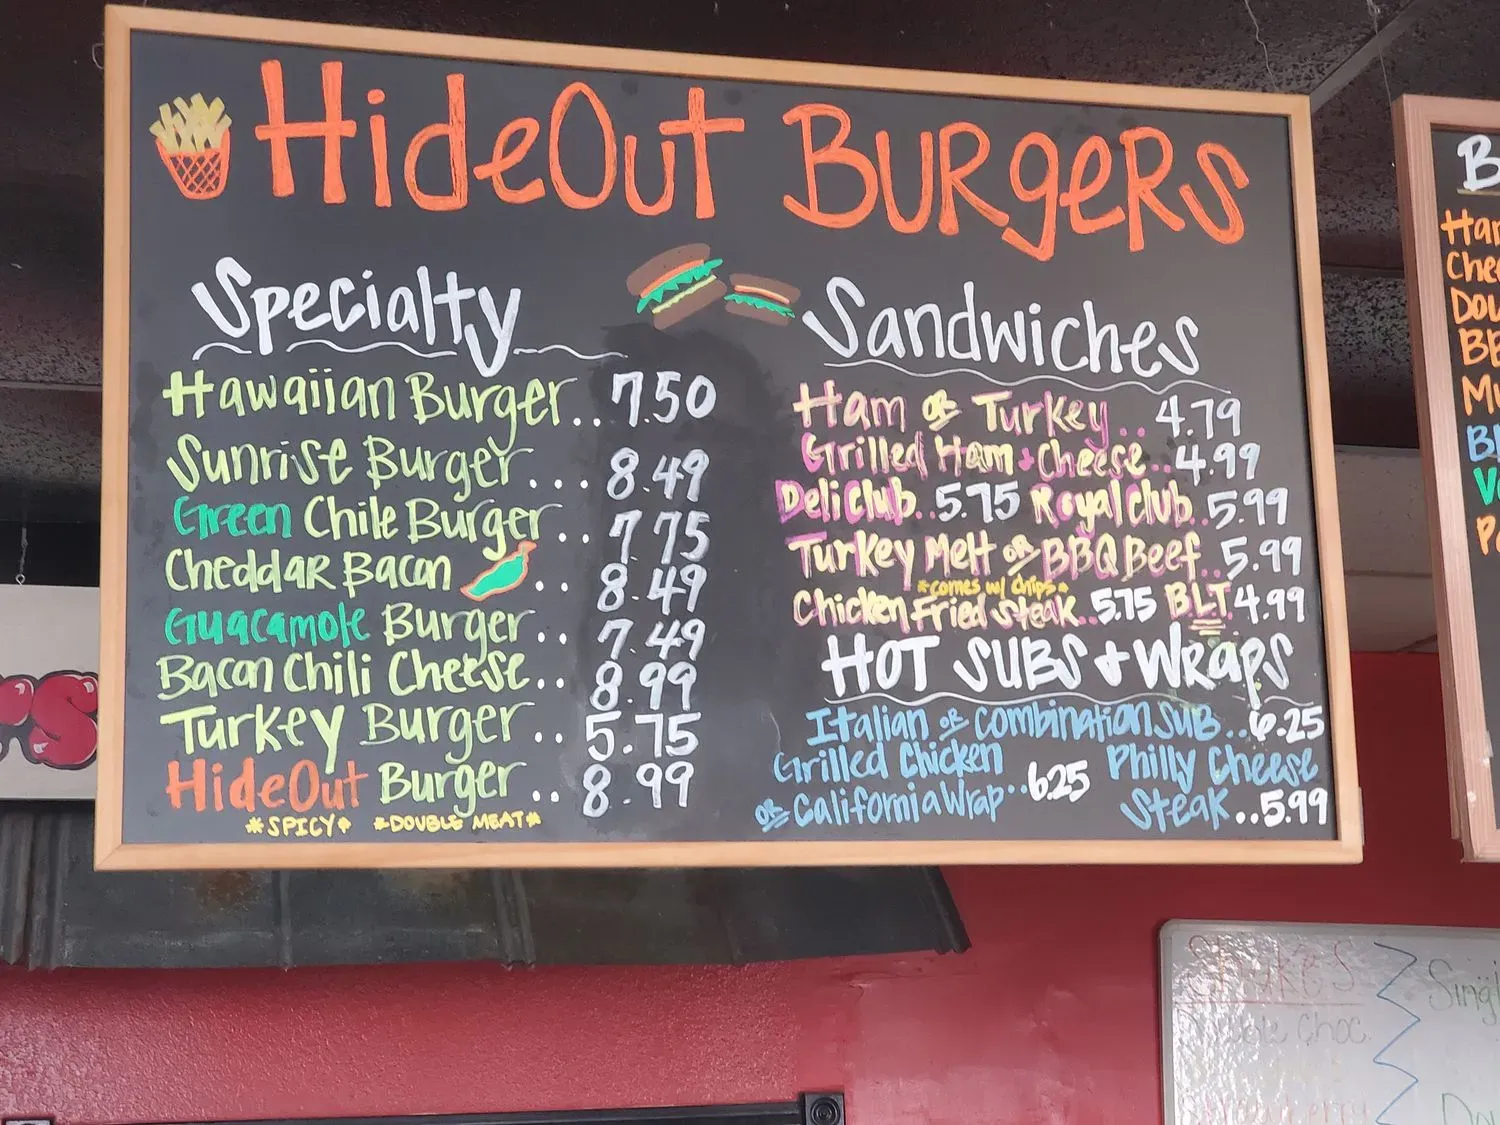 HideOut Burgers
Specialty
Hawaiian Burger.. 7.50
Sunrise Burger... 8.49
Green Chile Burger.. 7.75
Cheddar Bacon .. 8.49
Guacamole Burger.. 7.49
Bacon Chili Cheese.. 8.99
Turkey Burger.. 5.75
HideOut Burger.. 8.99
*SPICY* *DOUBLE MEAT*
Sandwiches
Ham or Turkey... 4.79
Grilled Ham + Cheese.. 4.99
Deli Club.. 5.75 Royal Club.. 5.99
Turkey Melt or BBQ Beef.. 5.99
*comes w/ chips*
Chicken Fried Steak.. 5.75 BLT 4.99
HOT SUBS + WRAPS
Italian or Combination Sub.. 6.25
Grilled Chicken
or California Wrap.. 6.25
Philly Cheese
Steak.. 5.99
B
Ha
Che
Dou
BB
Mu
Shakes
Choc.
Singl